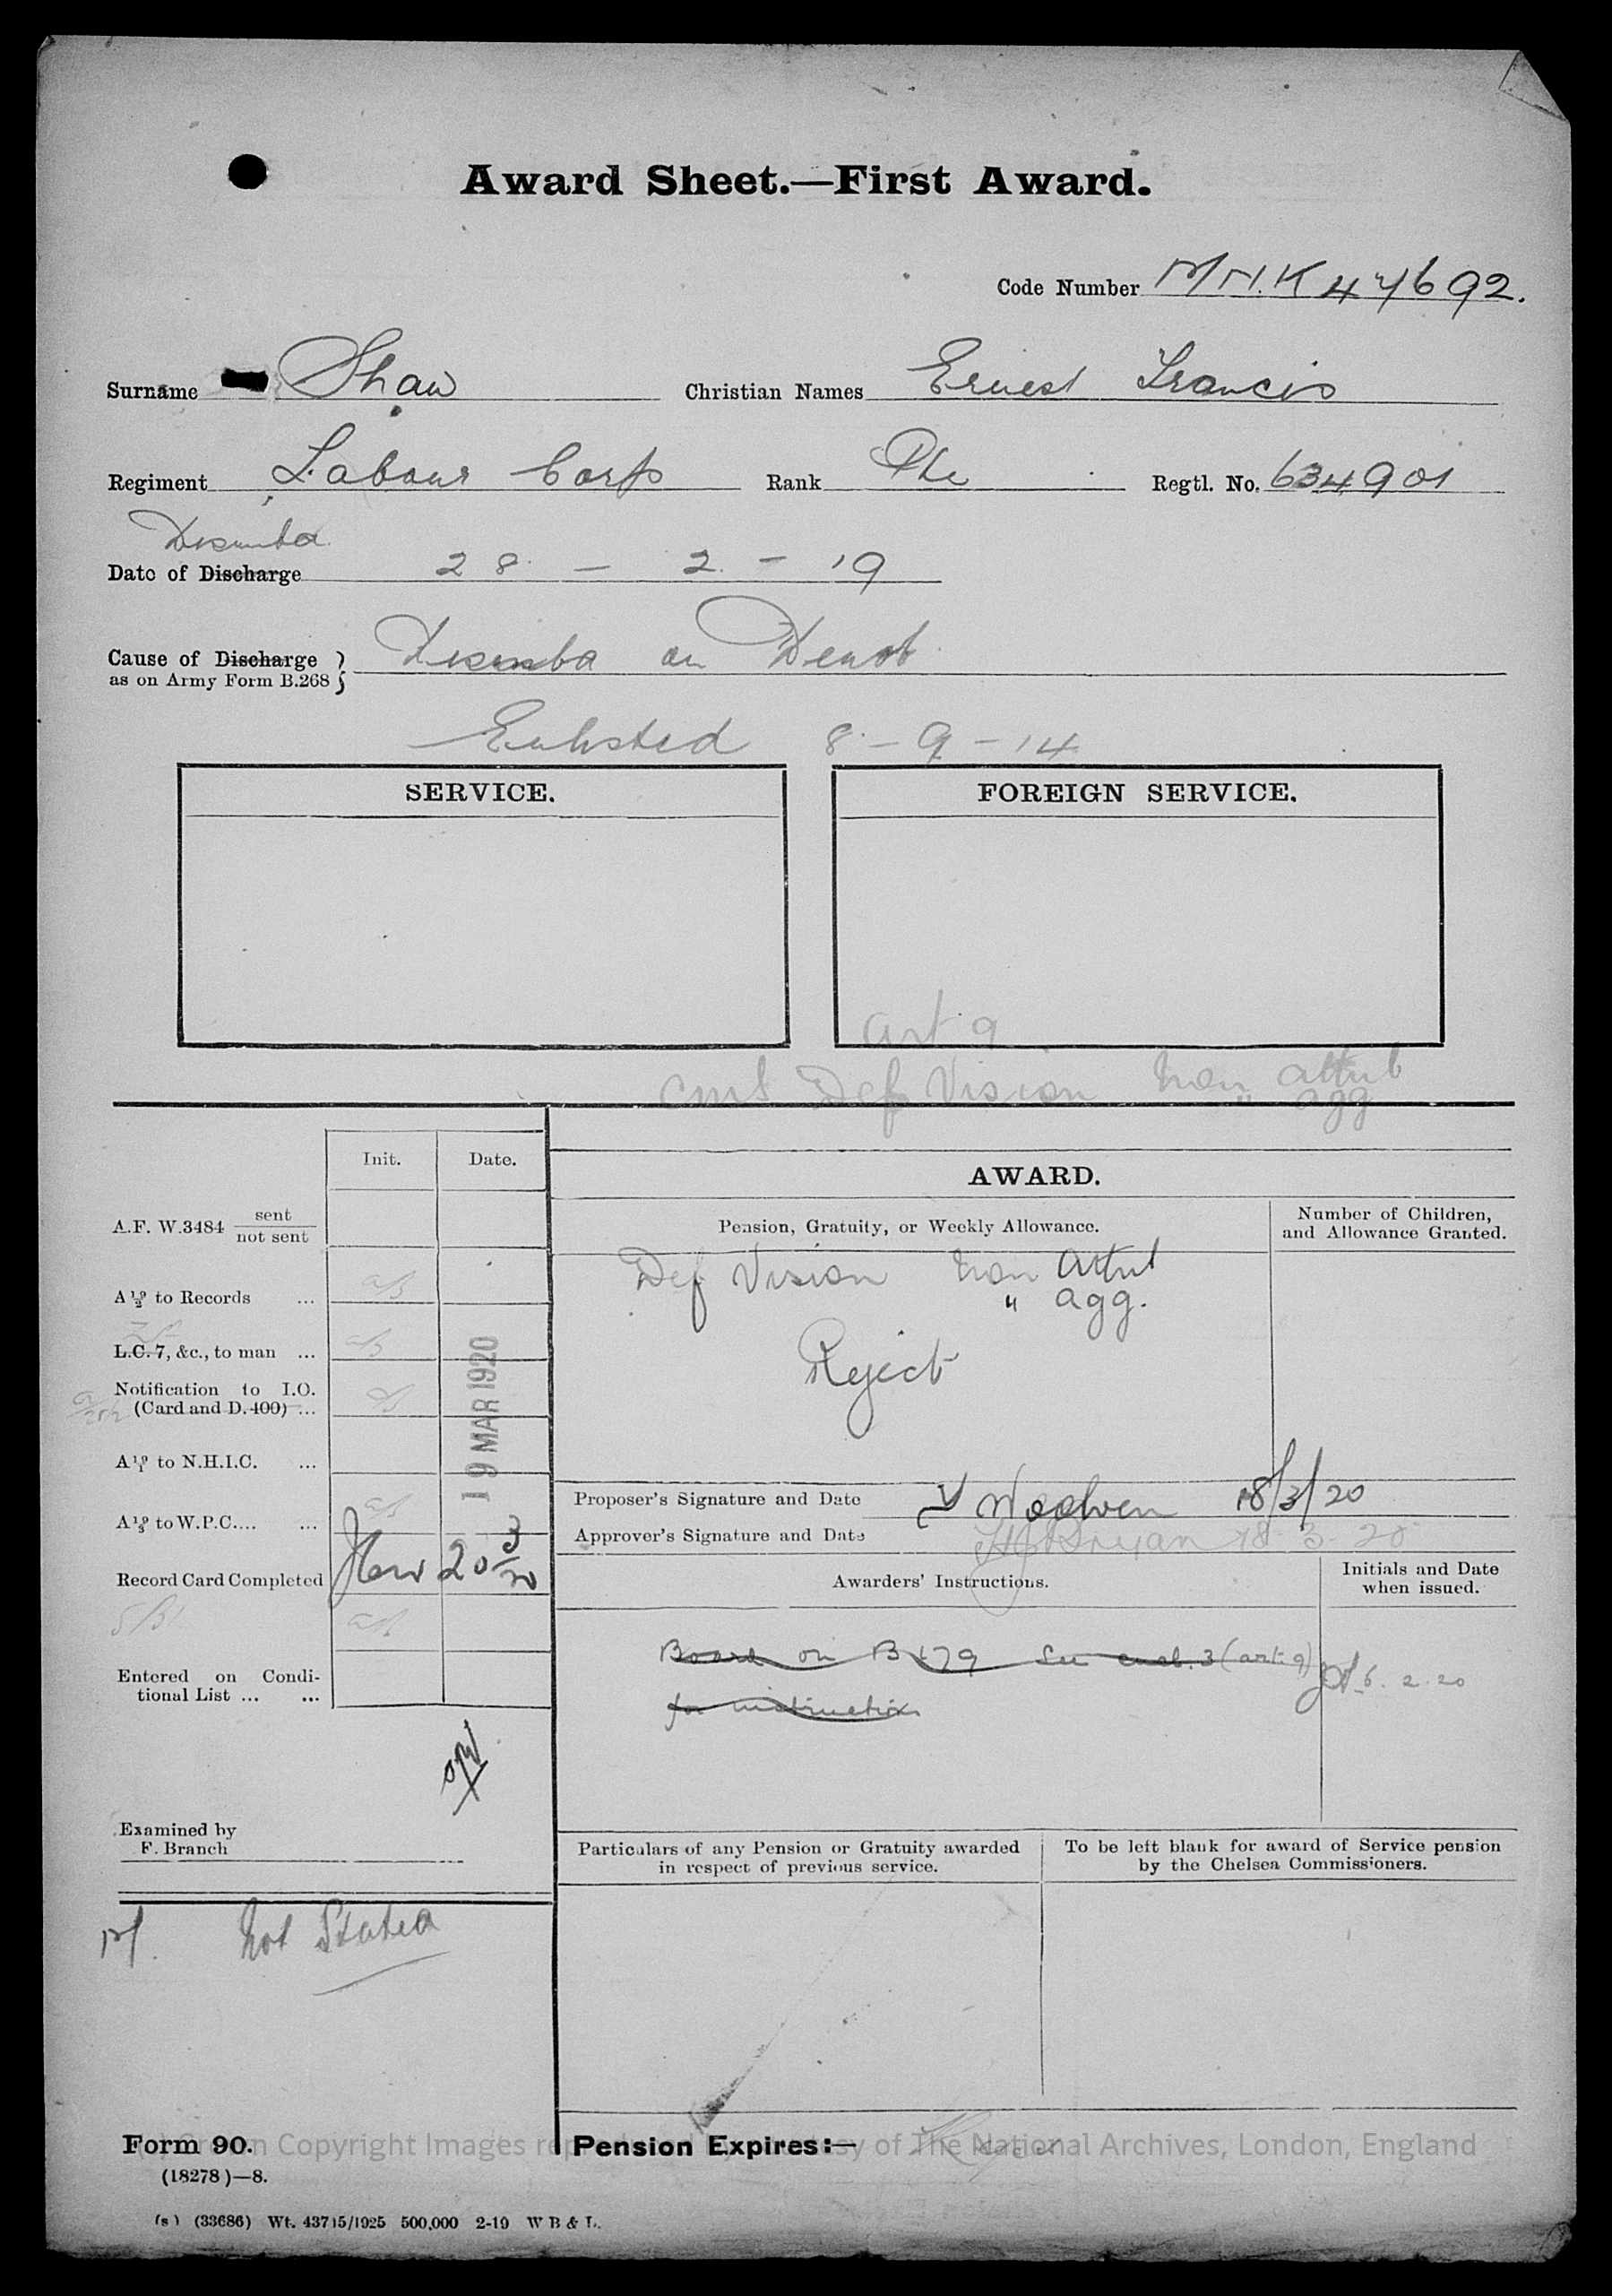 Award Sheet.—First Award.
Code Number M/M.K 47692.
Surname Shaw Christian Names Ernest Francis
Regiment Labour Corps Rank Pte Regtl. No. 634901
Disemb
Date of Discharge 28 - 2 - 19
Cause of Discharge
as on Army Form B.268 on Demob
Enlisted 8-9-14
SERVICE. FOREIGN SERVICE.
Art 9
Def Vision Non attrib
" agg
Init. Date.
AWARD.
A.F. W.3484 sent
not sent
Pension, Gratuity, or Weekly Allowance.
Number of Children,
and Allowance Granted.
Def Vision Non Attrib
" agg.
Reject
A 19/2 to Records ...
L.C. 7, &c., to man ...
Notification to I.O.
(Card and D. 400) ...
19 MAR 1920
A 19/1 to N.H.I.C. ...
A 19/3 to W.P.C.... ...
Record Card Completed 20 3/20
Entered on Condi-
tional List ... ...
Proposer's Signature and Date 18/3/20
Approver's Signature and Date 18-3-20
Awarders' Instructions.
Initials and Date
when issued.
Board on B179 See encl. 3 (art. 9) 6.2.20
for instructions
Examined by
F. Branch
Particulars of any Pension or Gratuity awarded
in respect of previous service.
To be left blank for award of Service pension
by the Chelsea Commissioners.
Not Stated
Pension Expires:—
Form 90.
(18278)—8.
(s) (33686) Wt. 43715/1925 500,000 2-19 W B & L.
Crown Copyright Images reproduced by courtesy of The National Archives, London, England